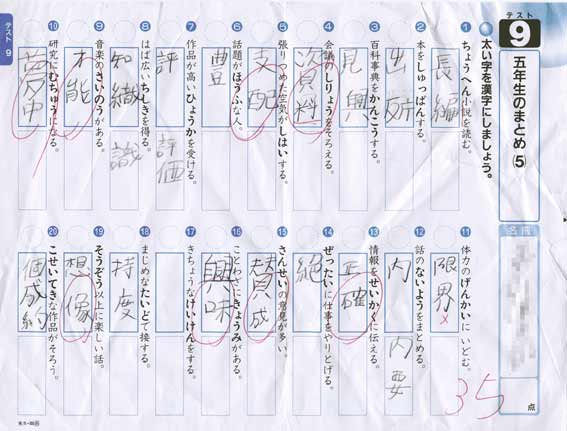 テスト
9
五年生のまとめ(5)
太い字を漢字にしましょう。
名前
35点
① ちょうへん小説を読む。
長編
② 本をしゅっぱんする。
出
③ 百科事典をかんこうする。
④ 会議のしりょうをそろえる。
資料
⑤ 張りつめた空気がしはいする。
支配
⑥ 話題がほうふな人。
豊
⑦ 作品が高いひょうかを受ける。
評
評価
⑧ はば広いちしきを得る。
知織
識
⑨ 音楽のさいのうがある。
才能
⑩ 研究にむちゅうになる。
夢中
⑪ 体力のげんかいにいどむ。
限界
⑫ 話のないようをまとめる。
内
内
⑬ 情報をせいかくに伝える。
正確
⑭ ぜったいに仕事をやりとげる。
絶
⑮ さんせいの意見が多い。
賛成
⑯ ことわざにきょうみがある。
興味
⑰ きちょうなけいけんをする。
⑱ まじめなたいどで接する。
持度
⑲ そうぞう以上に楽しい話。
想像
⑳ こせいてきな作品がそろう。
個成約
テスト 9